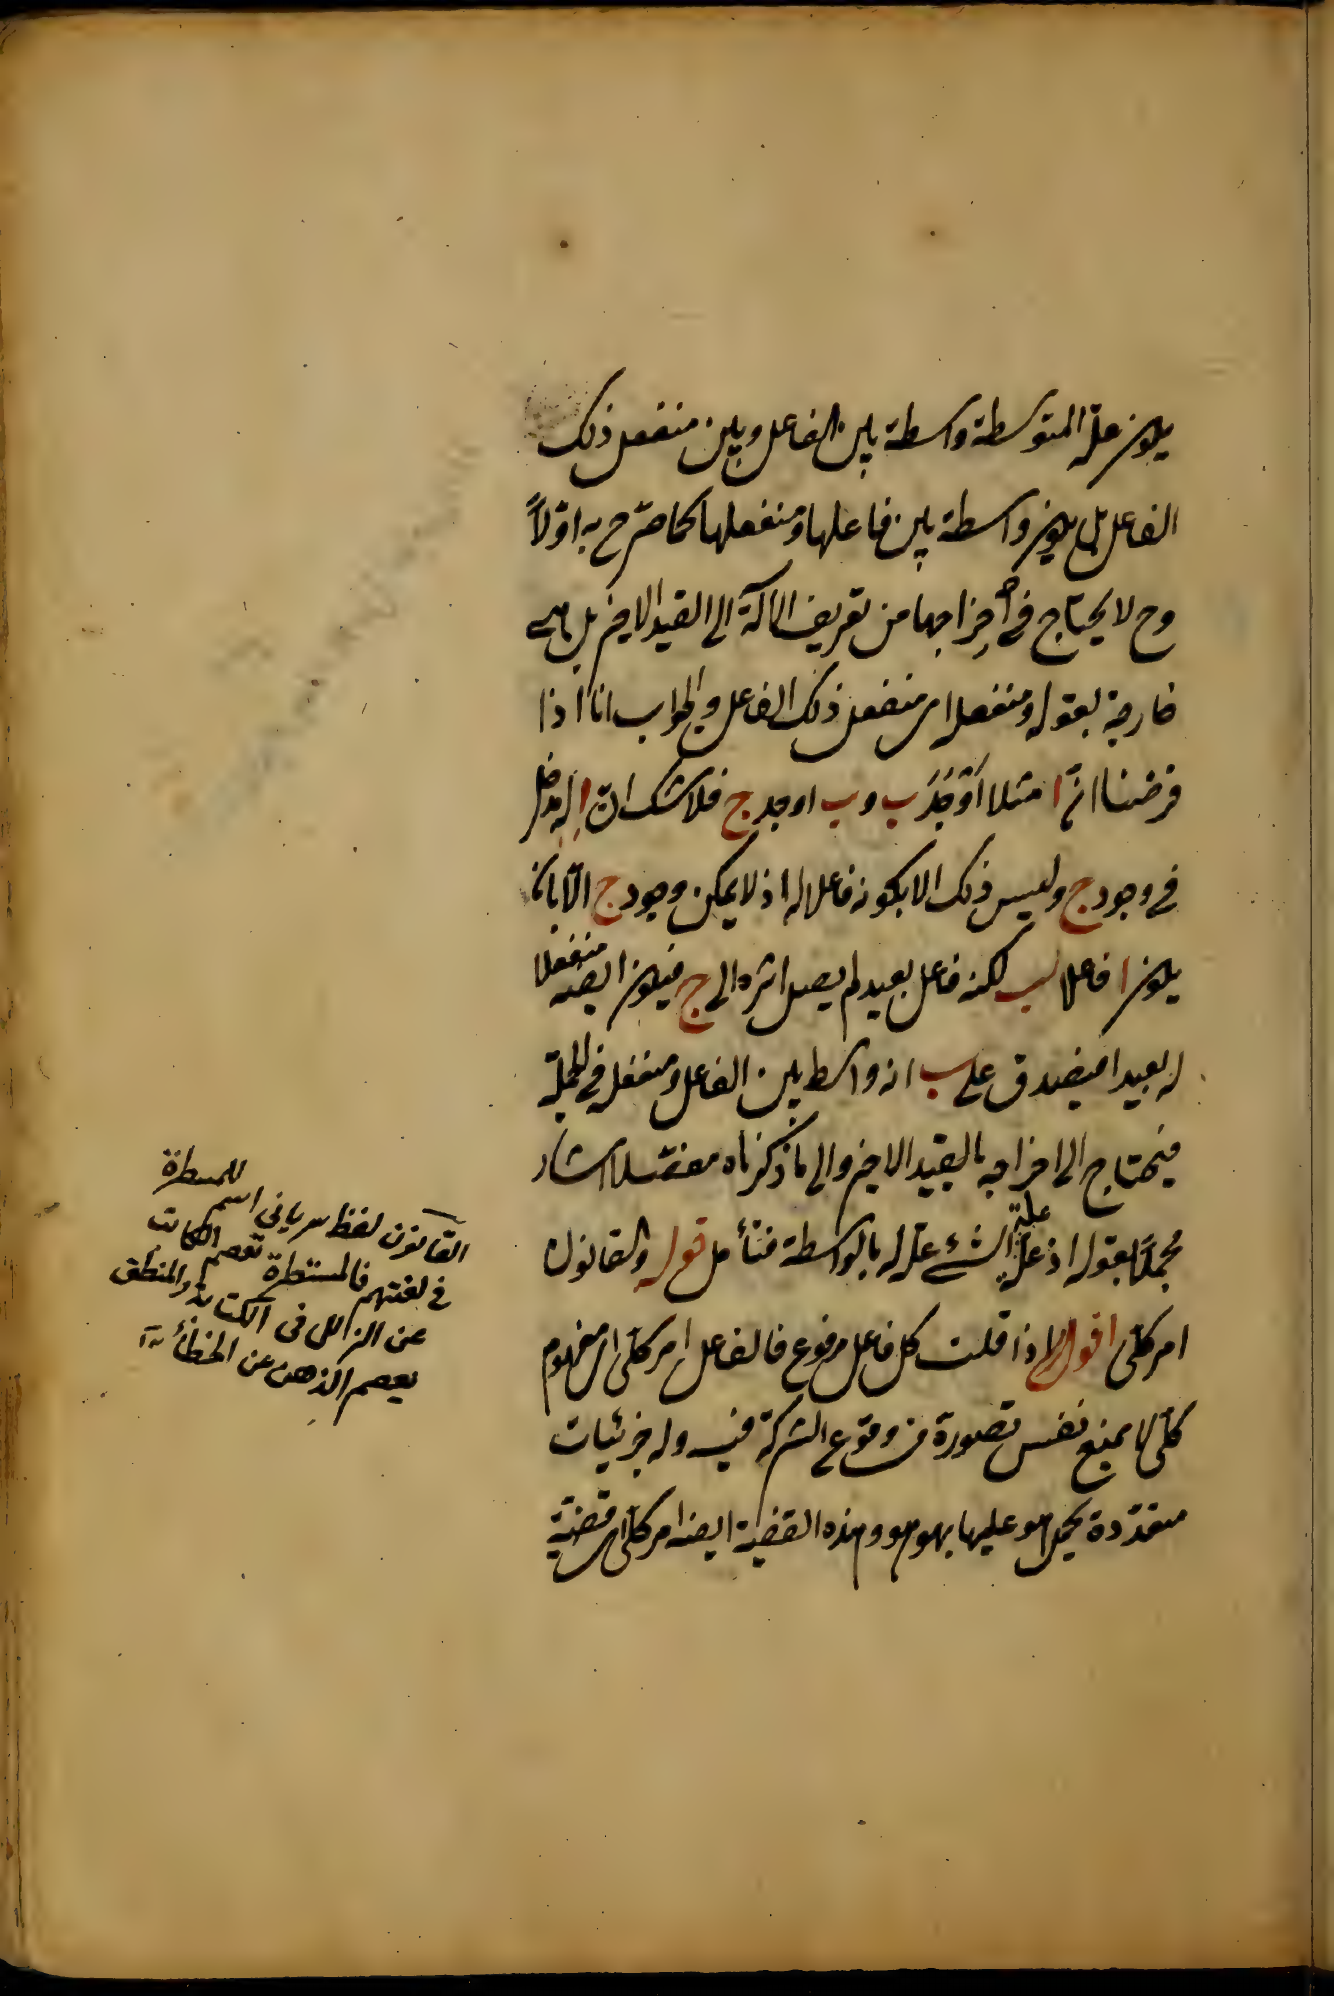 يكون علة المتوسطة واسطة بين الفاعل وبين منفعل ذلك
الفاعل بل يكون واسطة بين فاعلها ومنفعلها كما صرح به اوّلاً
وح لا يحتاج في أخراجها من تعريف الآلة الى القيد الاخير بل هي
خارجة بقوله ومنفعله اى منفعل ذلك الفاعل والجواب انا اذا
فرضنا انّ ا مثلا أوجَدَ ب وب اوجد ج فلا شك انّ ا له مدخل
في وجود ج وليس ذلك الا بكونه فاعلا له اذ لا يمكن وجود ج الّا بان
يكون ا فاعلا لب لكنه فاعل بعيد لم يصل اثره الى ج فيكون ايضه منفعلا
له بعيدا فيصدق على ب انه واسط بين الفاعل ومنفعله في الجملة
فيحتاج الى اخراجه بالقيد الاخير والى ما ذكرناه مفصّلا اشار
مجملًا بقوله اذ علة علة الشئ علة له بالواسطة فتأمل قوله والقانون
امر كلّى اقول اذا قلت كل فاعل مرفوع فالفاعل امر كلّى اى مفهوم
كلّى لا يمنع نفس تصوره من وقوع الشركة فيه وله جزئيات
متعدّدة يحمل هو عليها بهو هو وهذه القضية ايضه امر كلّى اى قضيّة
القانون لفظ سرياني اسم للمسطرة
في لغتهم فالمسطرة تعصم الكاتب
عن الزلل فى الكتابة والمنطق
يعصم الذهن عن الخطأ